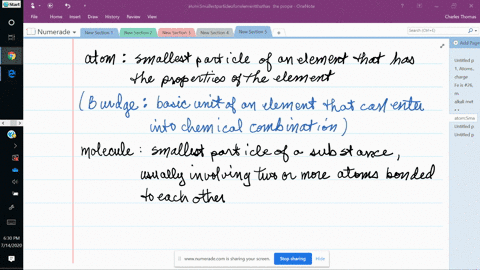 Start
atom: Smallest particle of an element that has the propert - OneNote
Charles Thomas
File Home Insert Draw History Review View
Numerade
New Section 1
New Section 2
New Section 3
New Section 4
New Section 5
Search (Ctrl+E)
Add Page
atom: smallest particle of an element that has
the properties of the element
(Burdge: basic unit of an element that can enter
into chemical combination)
molecule: smallest particle of a substance,
usually involving two or more atoms bonded
to each other
Untitled p
1. Atoms,
charge
alkali met
atom:Sma
Untitled p
Untitled p
www.numerade.com is sharing your screen.
Stop sharing
Hide
6:30 PM
7/14/2020